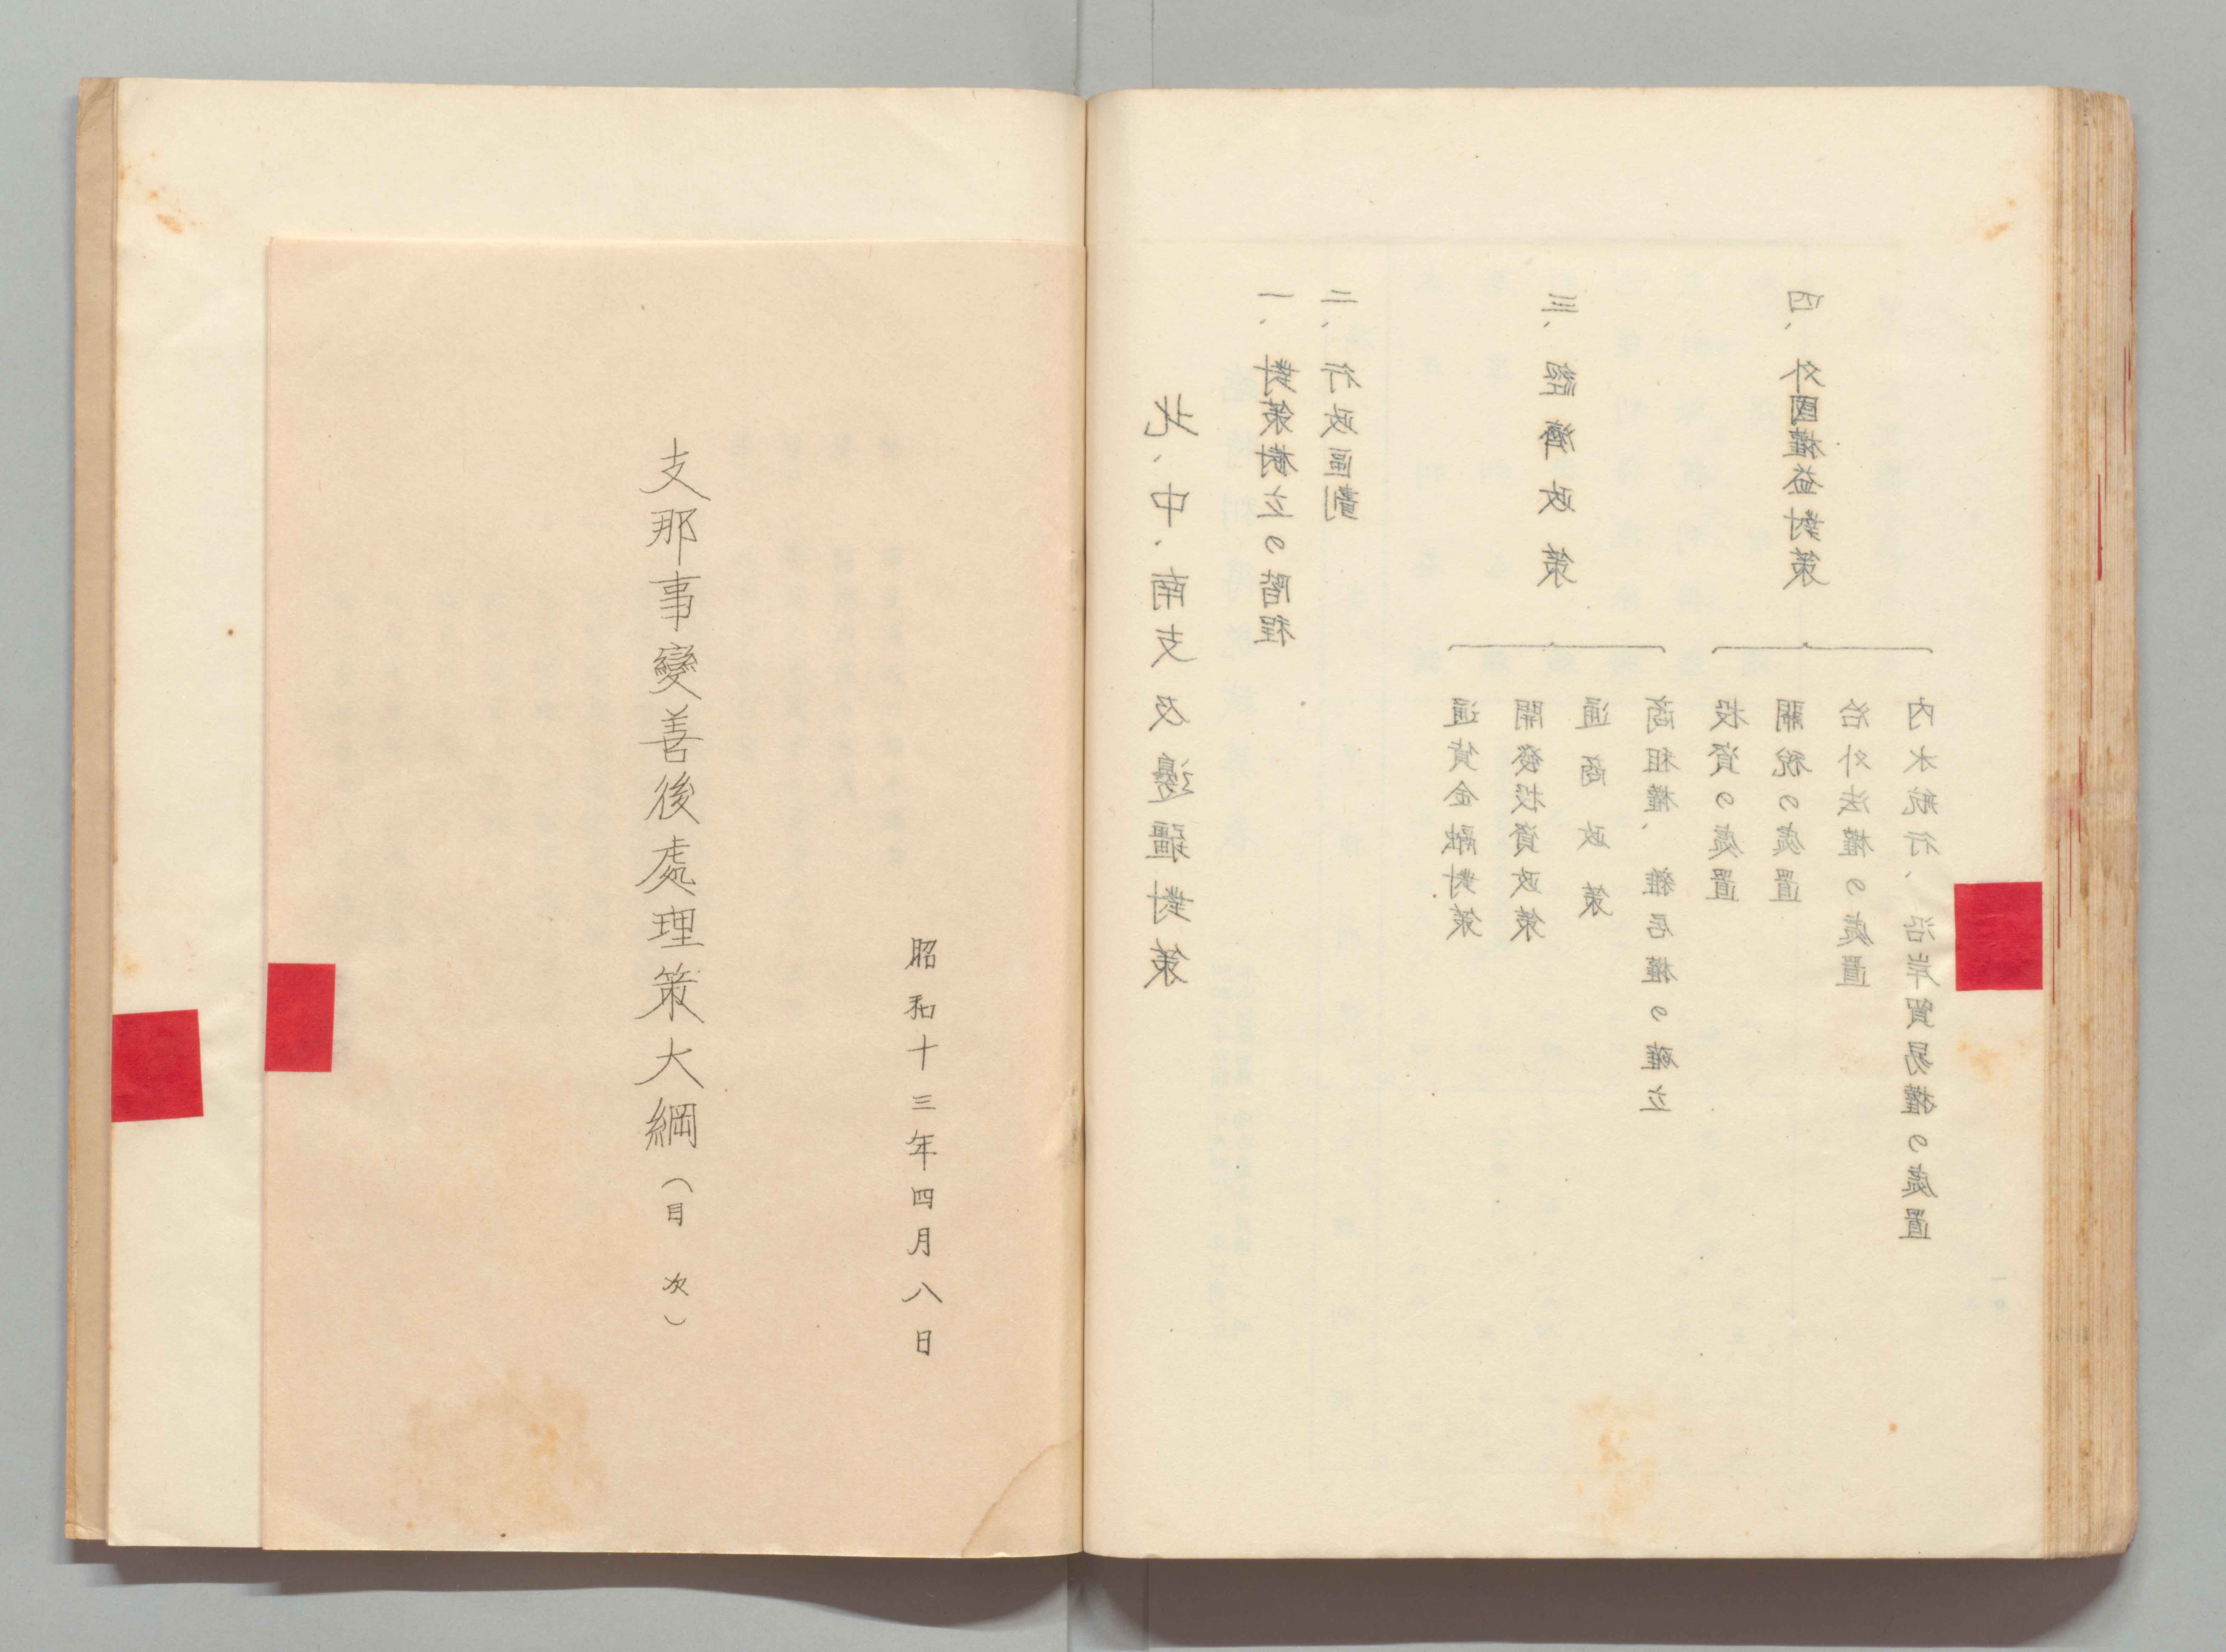 北、中、南支及邊疆對策
一、對策樹立の階程
二、行政區劃
三、經濟政策
通貨金融對策
開發投資政策
通商政策
商租權、雜居權の確立
四、外國權益對策
投資の處置
關税の處置
治外法權の處置
内水航行、沿岸貿易權の處置
昭和十三年四月八日
支那事變善後處理策大綱（目次）